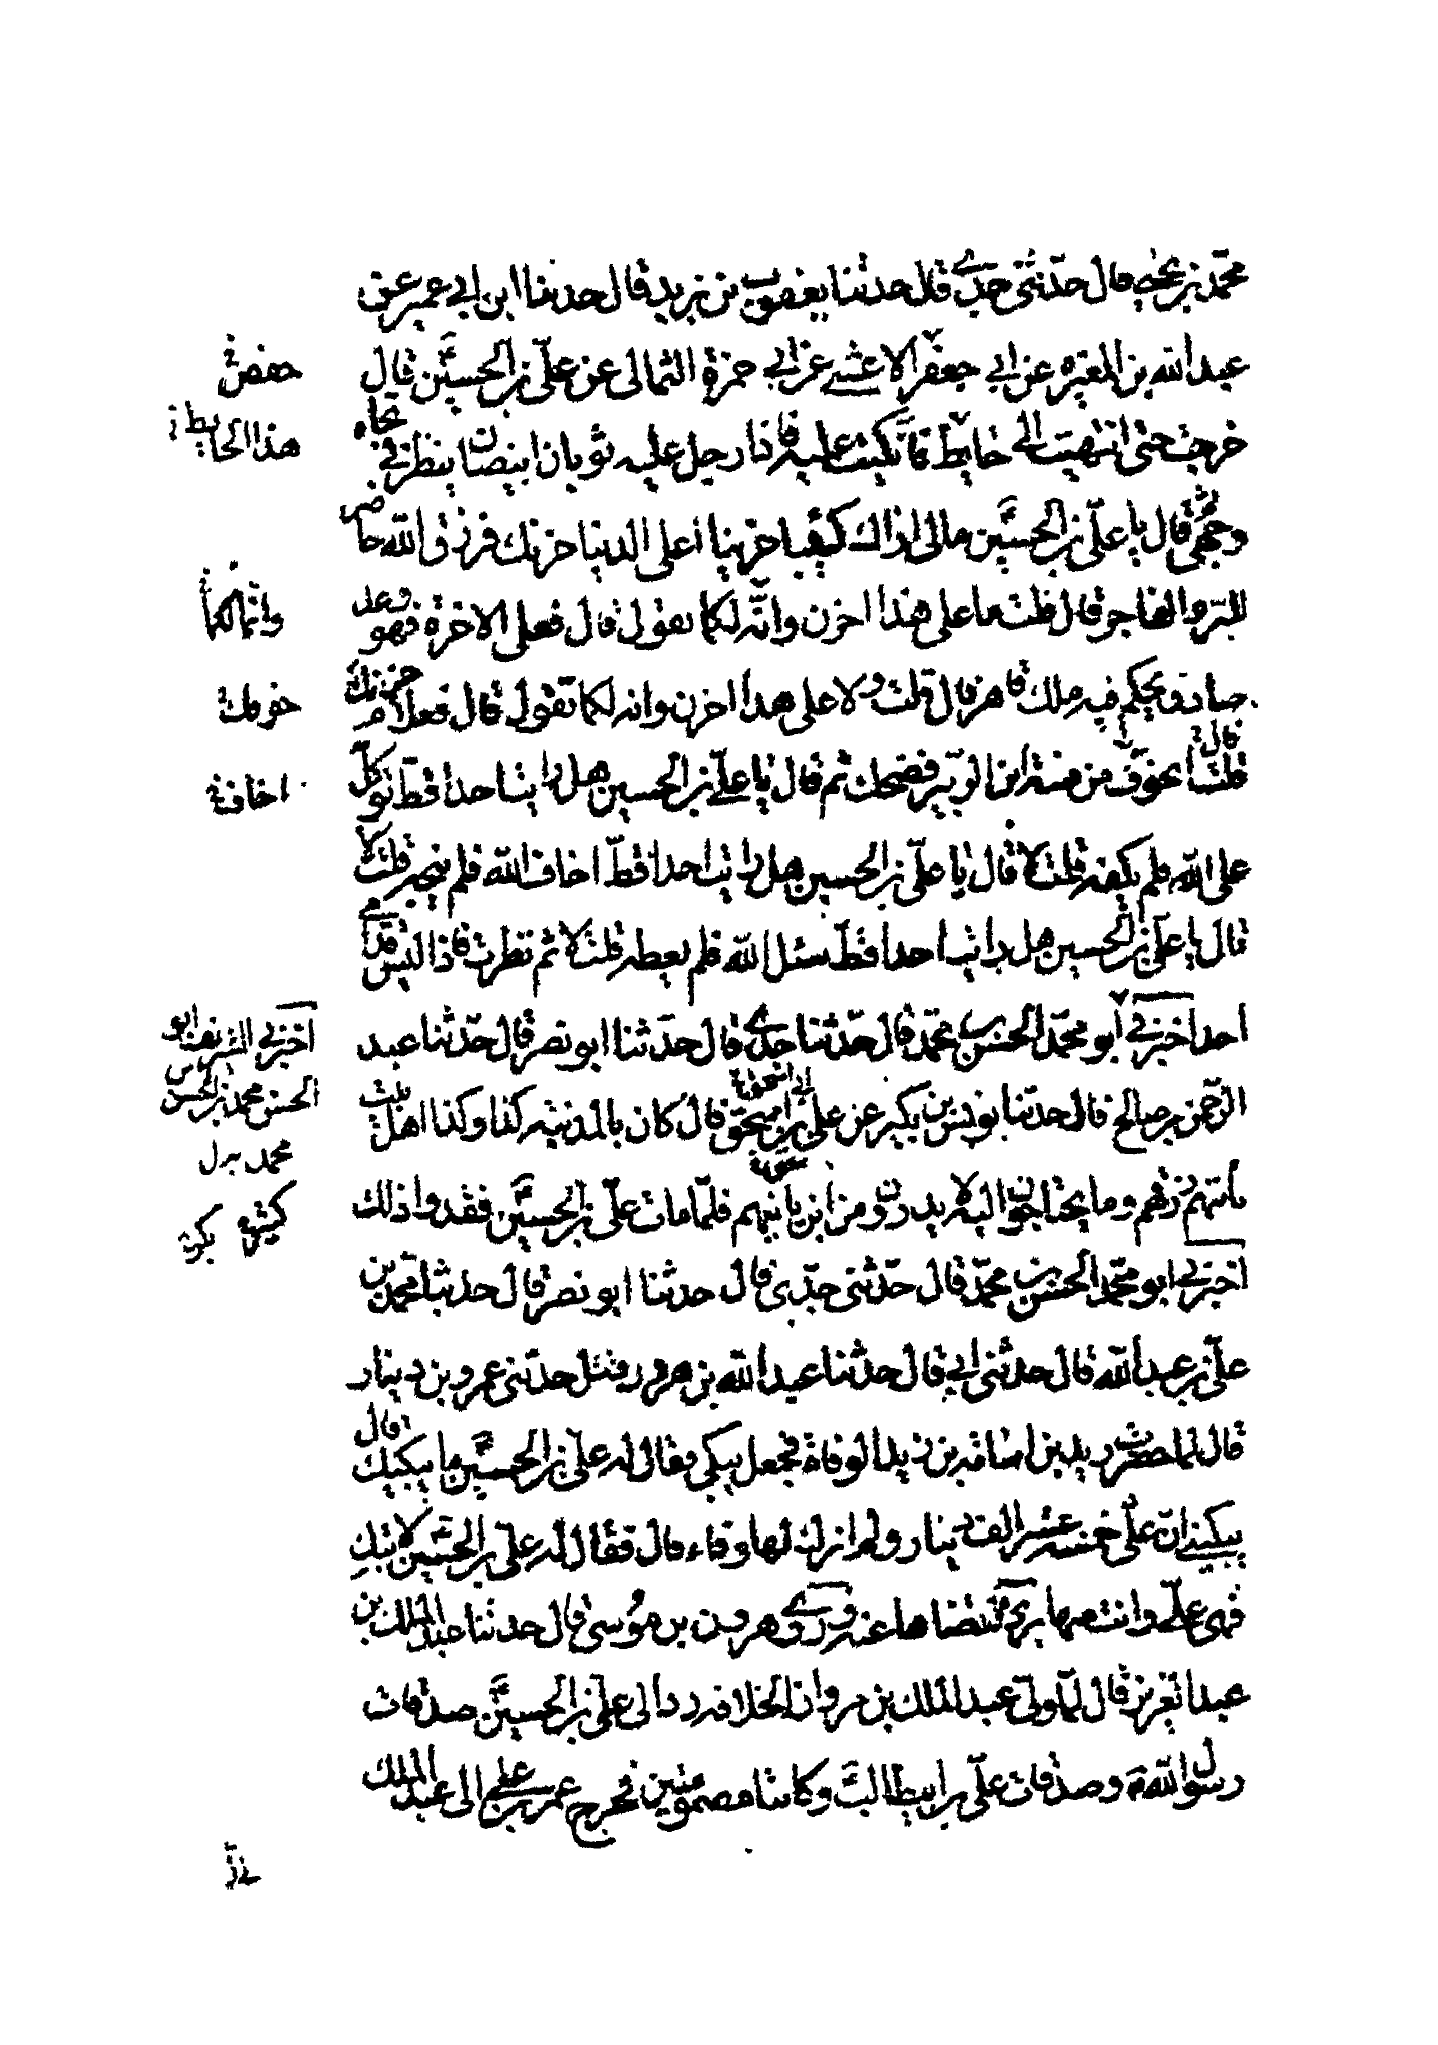 محمد بن يحيى قال حدثني جدي قال حدثنا يعقوب بن يزيد قال حدثنا ابن ابي عمير عن
عبد الله بن المغيره عن ابي جعفر الاعشى عن ابي حمزة الثمالى عن على بن الحسين قال
حفص
خرجت حتى انتهيت الى حايط فاتكيت عليه فاذا رجل عليه ثوبان ابيضان ينظر في تجاه
هذا الحايط
وجهى ثم قال يا على بن الحسين مالى اراك كئيبا حزينا اعلى الدنيا حزنك فرزق الله حاضر
للبر والفاجر قال قلت ما على هذا احزن وانه لكما تقول قال فعلى الاخرة فهو وعد
وانها لكما
صادق يحكم فيه ملك قاهر قال قلت ولا على هذا احزن وانه لكما تقول قال فعلام حزنك
خوفك
قال قلت اتخوف من فتنة ابن الزبير فضحك ثم قال يا على بن الحسين هل رايت احدا قط توكل
اخاف
على الله فلم يكفه قلت لا قال يا على بن الحسين هل رايت احدا قط اخاف الله فلم ينجه قلت لا
قال يا على بن الحسين هل رايت احدا قط سئل الله فلم يعطه قلت لا ثم نظرت فاذا ليس قدامي
احد اخبرني ابو محمد الحسن بن محمد قال حدثنا جدي قال حدثنا ابو نصر قال حدثنا عبد
اخبرني الشريف ابو
الرحمن بن صالح قال حدثنا يونس بن بكير عن على بن اسحق قال كان بالمدينه كذا وكذا اهل بيت
الحسن محمد بن الحسن
محمد بدل
ياتيهم رزقهم وما يحتاجون اليه لا يدرون من اين ياتيهم فلما مات على بن الحسين فقدوا ذلك
اخبرني ابو محمد الحسن بن محمد قال حدثنى جدى قال حدثنا ابو نصر قال حدثنا محمد بن
على بن عبد الله قال حدثنى ابي قال حدثنا عبد الله بن هرون قال حدثنى عمرو بن دينار
قال لما حضرت زيد بن اسامة بن زيد الوفاة فجعل يبكى فقال له على بن الحسين ما يبكيك قال
يبكيني ان على خمسه عشر الف دينار ولم اترك لها وفاء قال فقال له على بن الحسين لا تبك
فهى على وانت منها برىء فقضاها عنه وروى هرون بن موسى قال حدثنا عبد الملك بن
عبد العزيز قال لما ولى عبد الملك بن مروان الخلافه رد الى على بن الحسين صدقات
رسول الله وصدقات على بن ابيطالب وكانتا مضمومتين فخرج عمر بن على الى عبد الملك